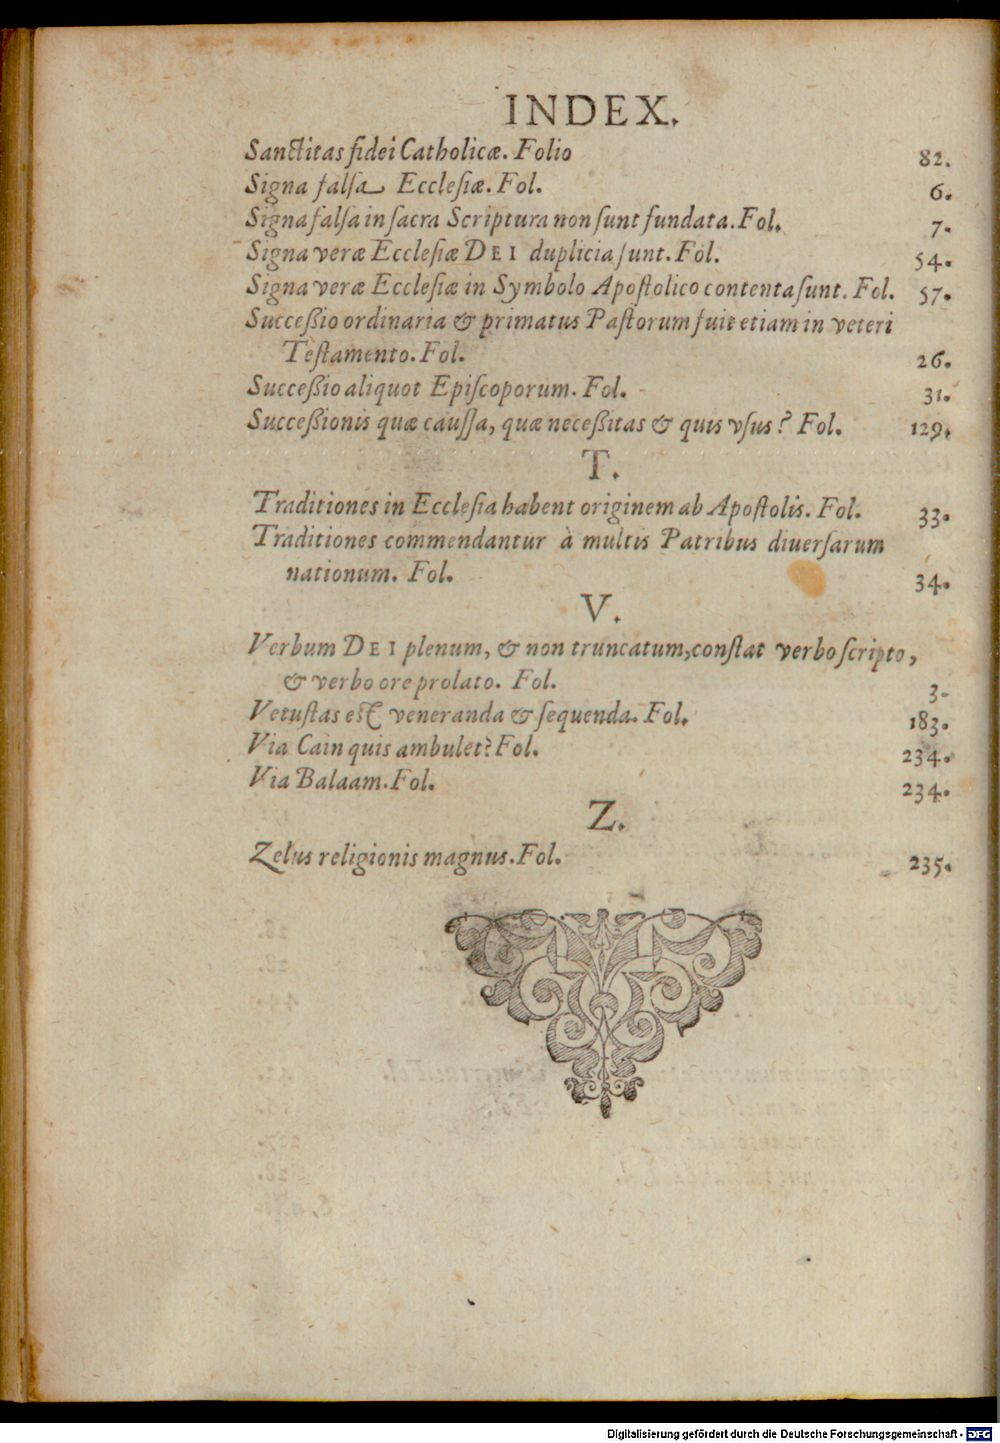 INDEX.
Sanctitas fidei Catholicæ. Folio 82.
Signa falsa Ecclesiæ. Fol. 6.
Signa falsa in sacra Scriptura non sunt fundata. Fol. 7.
Signa veræ Ecclesiæ DEI duplicia sunt. Fol. 54.
Signa veræ Ecclesiæ in Symbolo Apostolico contenta sunt. Fol. 57.
Succeßio ordinaria & primatus Pastorum fuit etiam in veteri
Testamento. Fol. 26.
Succeßio aliquot Episcoporum. Fol. 31.
Succeßionis quæ caussa, quæ neceßitas & quis vsus? Fol. 129.
T.
Traditiones in Ecclesia habent originem ab Apostolis. Fol. 33.
Traditiones commendantur à multis Patribus diuersarum
nationum. Fol. 34.
V.
Verbum DEI plenum, & non truncatum, constat verbo scripto,
& verbo ore prolato. Fol. 3.
Vetustas est veneranda & sequenda. Fol. 183.
Via Cain quis ambulet? Fol. 234.
Via Balaam. Fol. 234.
Z.
Zelus religionis magnus. Fol. 235.
Digitalisierung gefördert durch die Deutsche Forschungsgemeinschaft - DFG